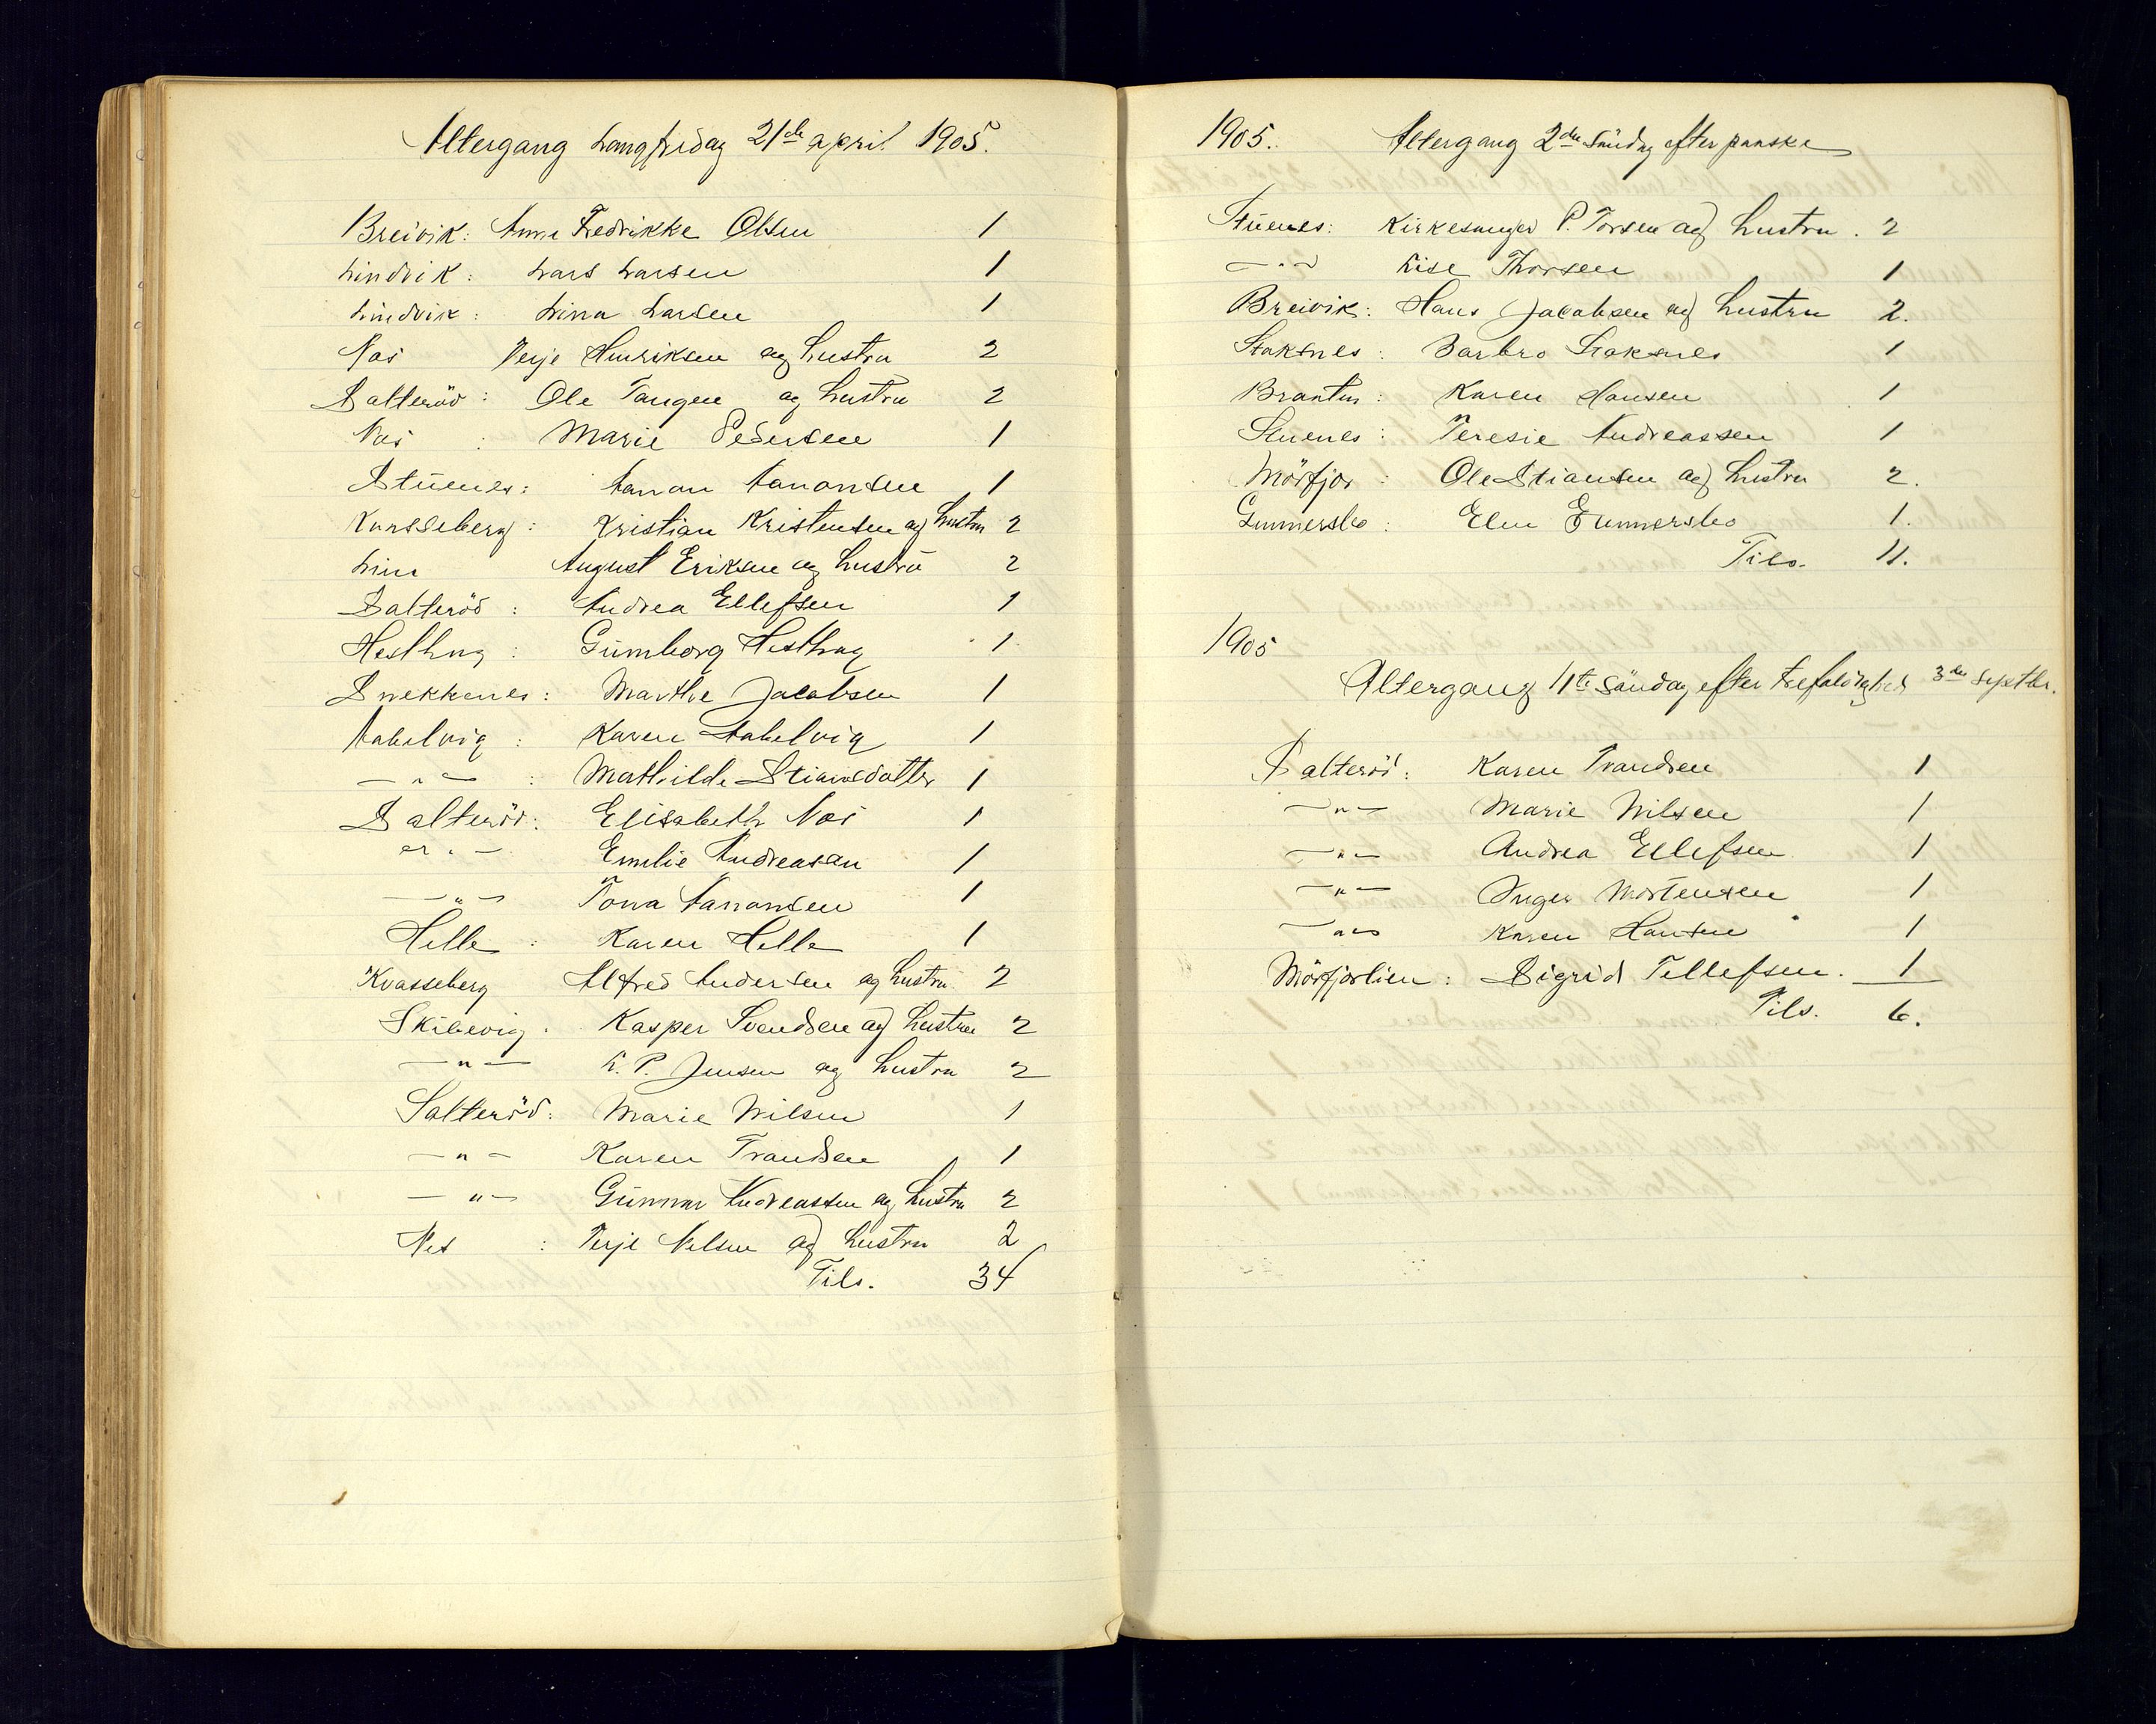 Altergang Langfredag 21de april 1905.
Breivik: Anne Fredrikke Olsen 1
Lindvik: Lars Larsen 1
Lindvik: Lina Larsen 1
Næs Terje Henriksen og hustru 2
Salteröd: Ole Tangen og hustru 2
Næs : Marie Pedersen 1
Stüenes: Aanon Aanonsen 1
Kvasseberg: Kristian Kristensen og hustru 2
Line August Eriksen og hustrü 2
Salteröd: Andrea Ellefsen 1
Hesthag: Günnborg Hesthag 1
Snekkenes: Marthe Jacobsen 1
Aabelvig: Karen Aabelvig 1
—"— : Mathilde Stiansdatter 1
Salteröd: Elisabeth Næs 1
—"— Emilie Andreasen 1
—"— Tona Aanonsen 1
Helle : Karen Helle 1
Kvasseberg Alfred Andersen og hustru 2
Skibevig. Kasper Svendsen og hustru 2
—"— L. P. Jensen og hustru 2
Salteröd: Marie Nilsen 1
—"— Karen Trandsen 1
—"— Günnar Andreassen og hustru 2
Nes : Terje Nelsen og hustru 2
Tils. 34
1905. Altergang 2den Söndag efter paaske
Stüenes: Kirkesanger P. Torsen og hustru. 2
—"— Lise Thorsen 1
Breivik: Hans Jacobsen og hustru 2.
Staksnes: Barbro Staksnes 1
: Karen Hansen 1
Stuenes: Teresie Andreassen 1
Mörfjær: Ole Stiansen og hustru 2.
Gunnersbo: Elen Gunnersbo 1.
Tils. 11.
1905
Altergang 11te Söndag efter trefoldighed 3die septbr.
Salteröd: Karen Trandsen 1
—"— Marie Nilsen 1
—"— Andrea Ellefsen 1
—"— Inger Mortensen 1
—"— Karen Hansen 1
Mörfjærlien: Sigrid Tellefsen. 1
Tils. 6.